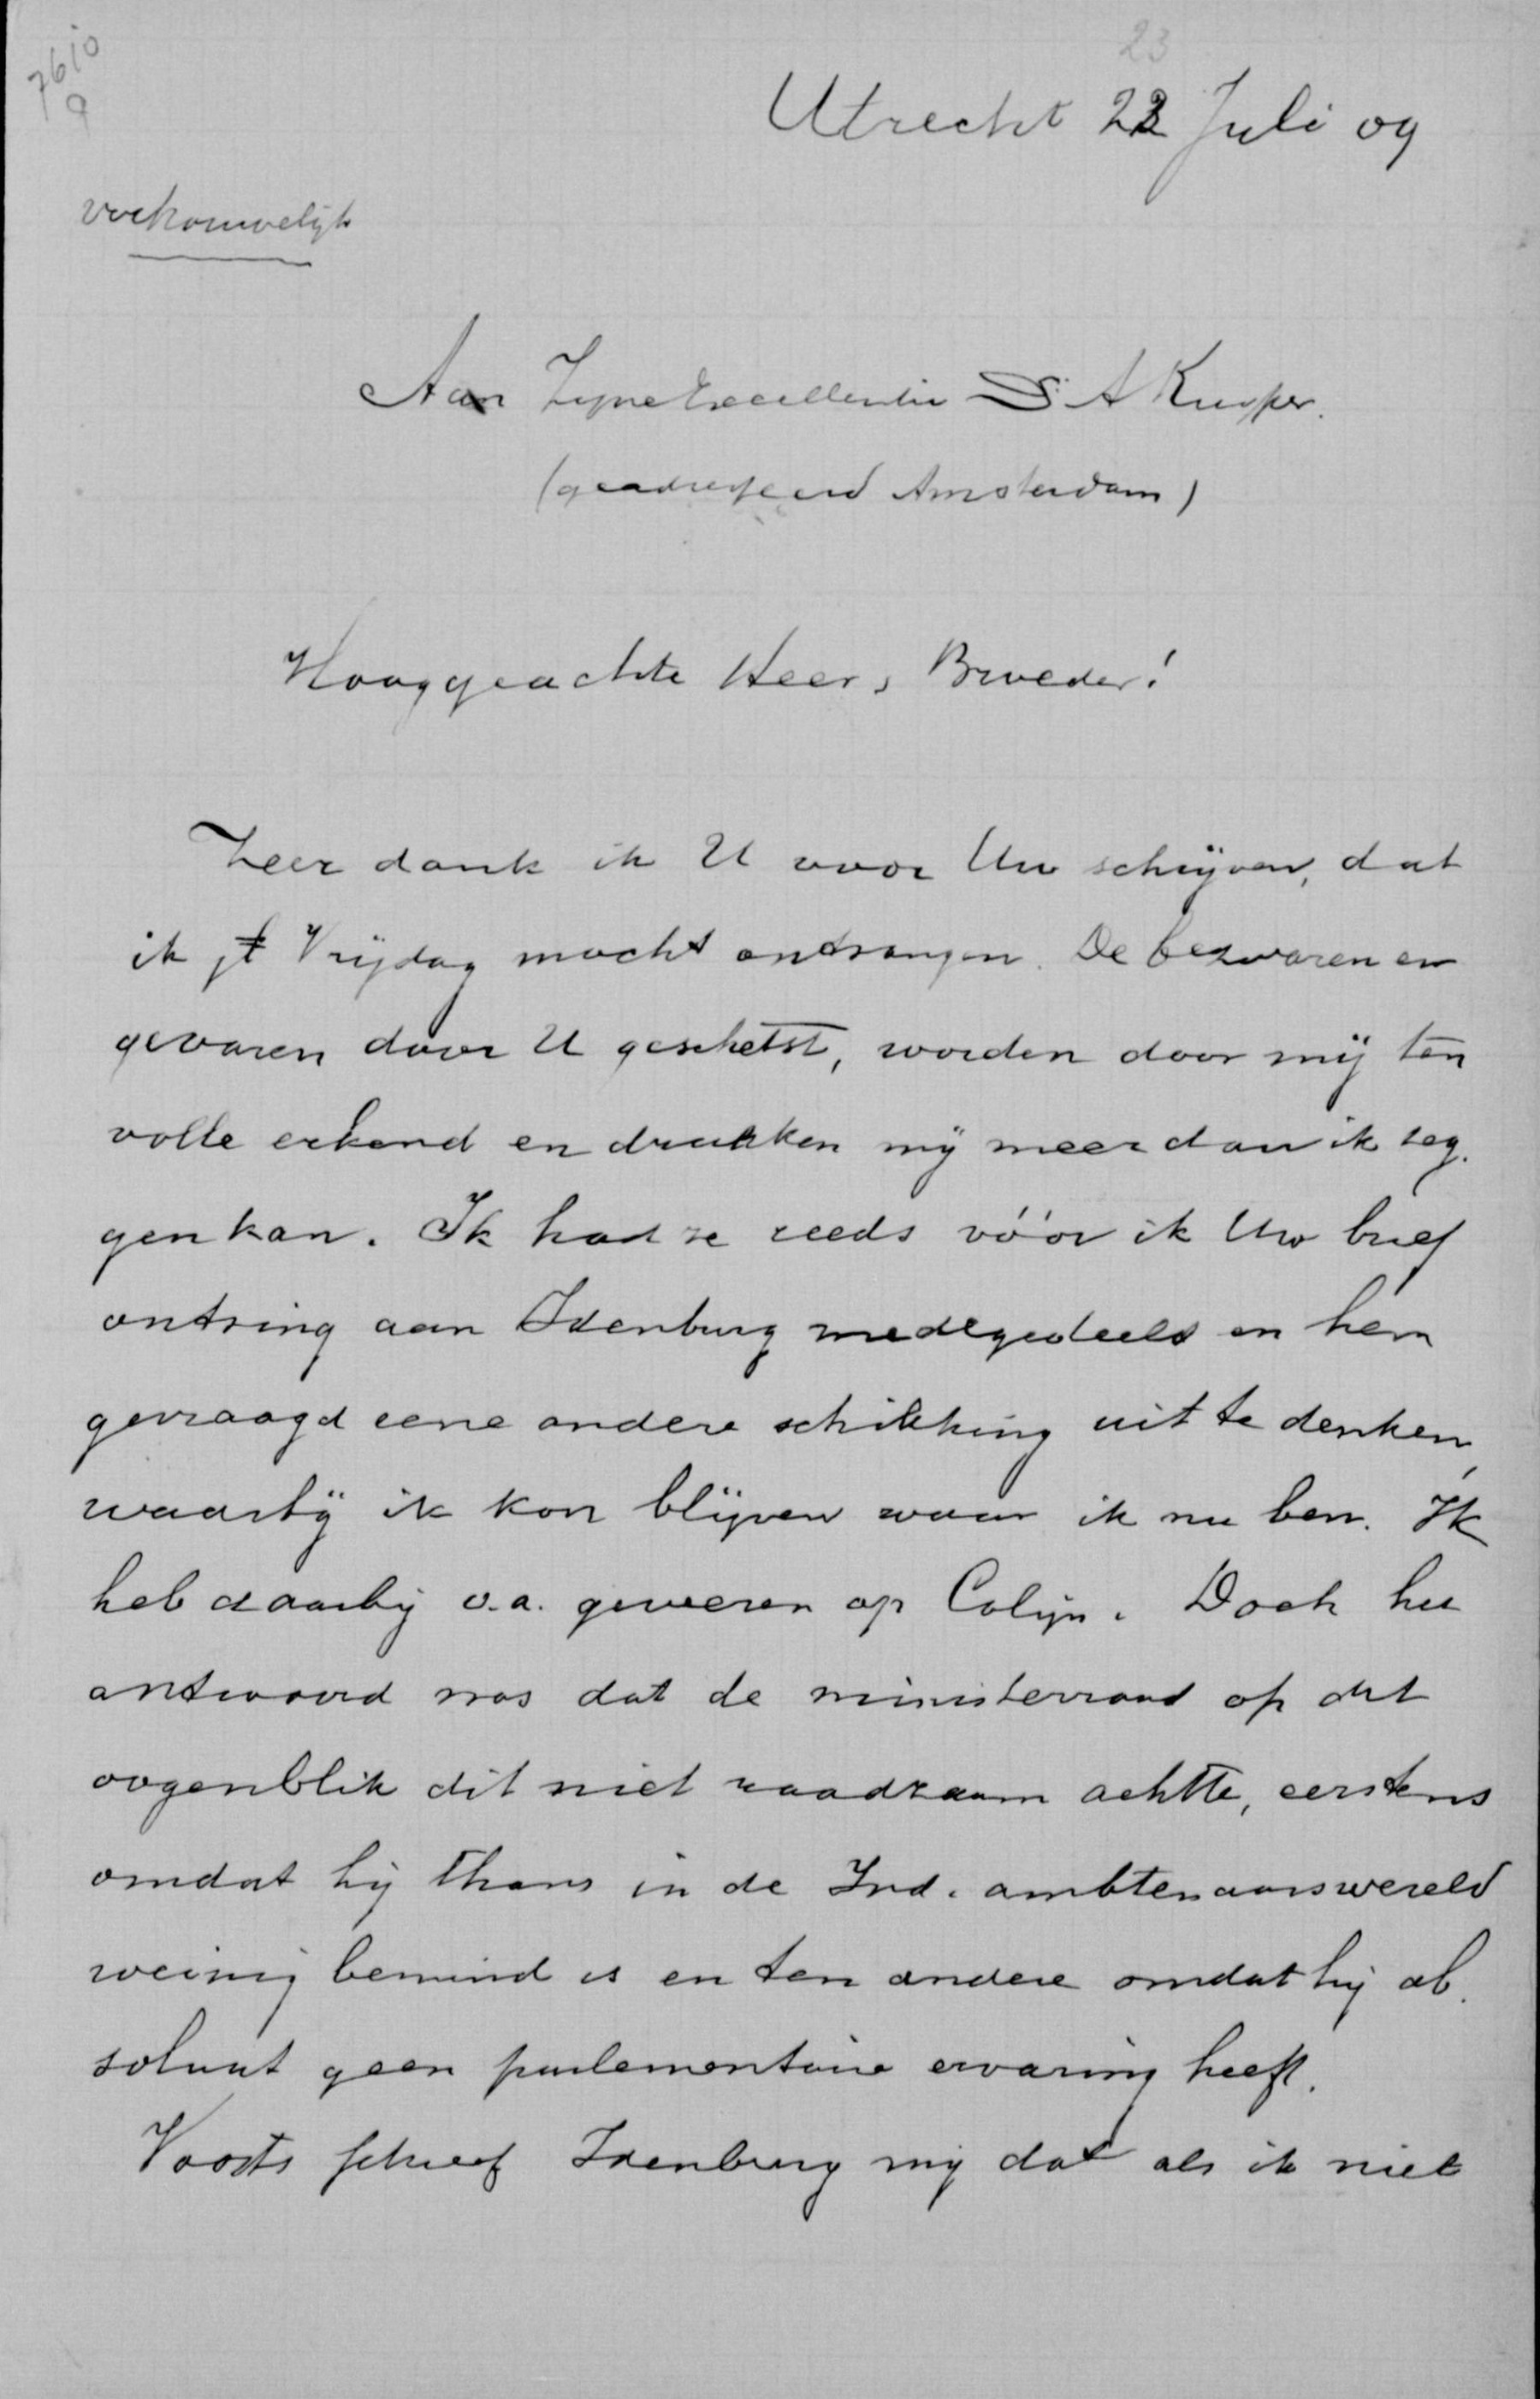 7610
9
23
Utrecht 22 Juli 09
vertrouwelijk
Aan Zyne Excellentie Dr A Kuyper.
(geadresseerd Amsterdam)
Hooggeachte Heer, Broeder!
Zeer dank ik U voor Uw schrijven, dat
ik jl Vrijdag mocht ontvangen. De bezwaren en
gevaren door U geschetst, worden door mij ten
volle erkend en drukken mij meer dan ik zeg-
gen kan. Ik had ze reeds vóór ik Uw brief
ontving aan Idenburg medegedeeld en hem
gevraagd eene andere schikking uit te denken,
waarbij ik kon blijven waar ik nu ben. Ik
heb daarbij o.a. gewezen op Colijn. Doch het
antwoord was dat de ministerraad op dit
oogenblik dit niet raadzaam achtte, eerstens
omdat hij thans in de Ind. ambtenaarswereld
weinig bemind is en ten andere omdat hij ab-
soluut geen parlementaire ervaring heeft.
Voorts schreef Idenburg mij dat als ik niet